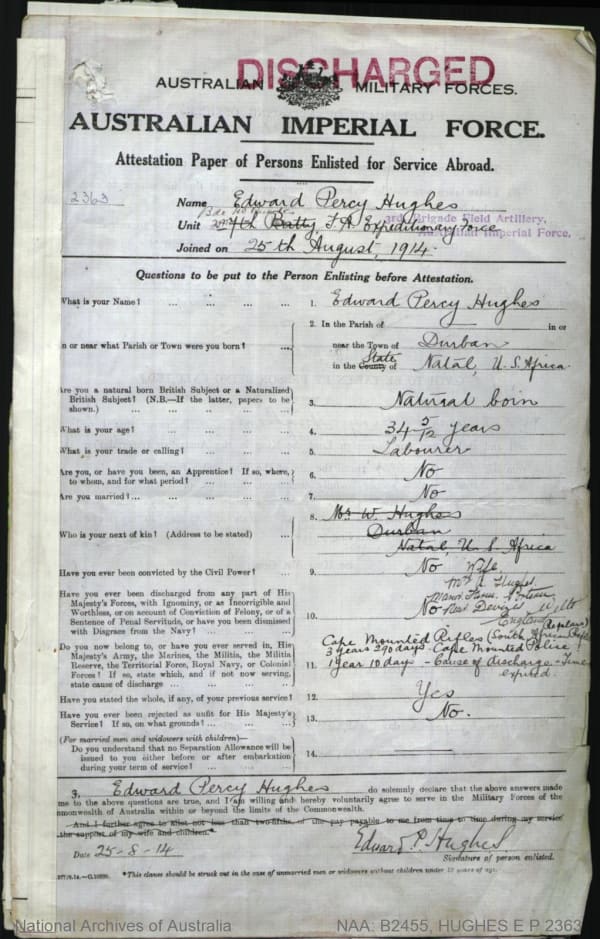 DISCHARGED
AUSTRALIAN MILITARY FORCES.
AUSTRALIAN IMPERIAL FORCE.
Attestation Paper of Persons Enlisted for Service Abroad.
2363
Name Edward Percy Hughes
Unit 7th Batty F.A. Expeditionary Force
3rd Brigade Field Artillery,
Australian Imperial Force.
Joined on 25th August, 1914.
Questions to be put to the Person Enlisting before Attestation.
What is your Name? ... ... ... ... 1. Edward Percy Hughes
2. In the Parish of in or
n or near what Parish or Town were you born? ... near the Town of Durban
in the County of State Natal, U. S. Africa
Are you a natural born British Subject or a Naturalized
British Subject? (N.B.—If the latter, papers to be
shown.) ... ... ... ... 3. Natural born
What is your age? ... ... ... ... 4. 34 5/12 years
What is your trade or calling? ... ... ... 5. Labourer
Are you, or have you been, an Apprentice? If so, where,
to whom, and for what period? ... ... ... 6. No
Are you married?... ... ... ... 7. No
8. Mr W. Hughes
Who is your next of kin? (Address to be stated) ... Durban
Natal, U. S. Africa
Have you ever been convicted by the Civil Power? ... 9. No
Wife
Mrs Hughes
Manor Farm
near Devizes Wilts
England
Have you ever been discharged from any part of His
Majesty's Forces, with Ignominy, or as Incorrigible and
Worthless, or on account of Conviction of Felony, or of a
Sentence of Penal Servitude, or have you been dismissed
with Disgrace from the Navy? ... ... 10. No
Do you now belong to, or have you ever served in, His
Majesty's Army, the Marines, the Militia, the Militia
Reserve, the Territorial Force, Royal Navy, or Colonial
Forces? If so, state which, and if not now serving,
state cause of discharge ... ... ... 11. Cape Mounted Rifles (South African Regulars)
3 years 290 days - Cape Mounted Police
1 year 10 days - Cause of discharge - Time
expired.
Have you stated the whole, if any, of your previous service? 12. Yes
Have you ever been rejected as unfit for His Majesty's
Service? If so, on what grounds? ... ... ... 13. No.
(For married men and widowers with children)—
Do you understand that no Separation Allowance will be
issued to you either before or after embarkation
during your term of service? ... ... ... 14.
I, Edward Percy Hughes do solemnly declare that the above answers made
me to the above questions are true, and I am willing and hereby voluntarily agree to serve in the Military Forces of the
mmonwealth of Australia within or beyond the limits of the Commonwealth.
And I further agree to allot not less than two-fifths of the pay payable to me from time to time during my service
the support of my wife and children.*
Date 25-8-14 Edward P. Hughes.
Signature of person enlisted.
*This clause should be struck out in the case of unmarried men or widowers without children under 18 years of age.
National Archives of Australia NAA: B2455, HUGHES E P 2363